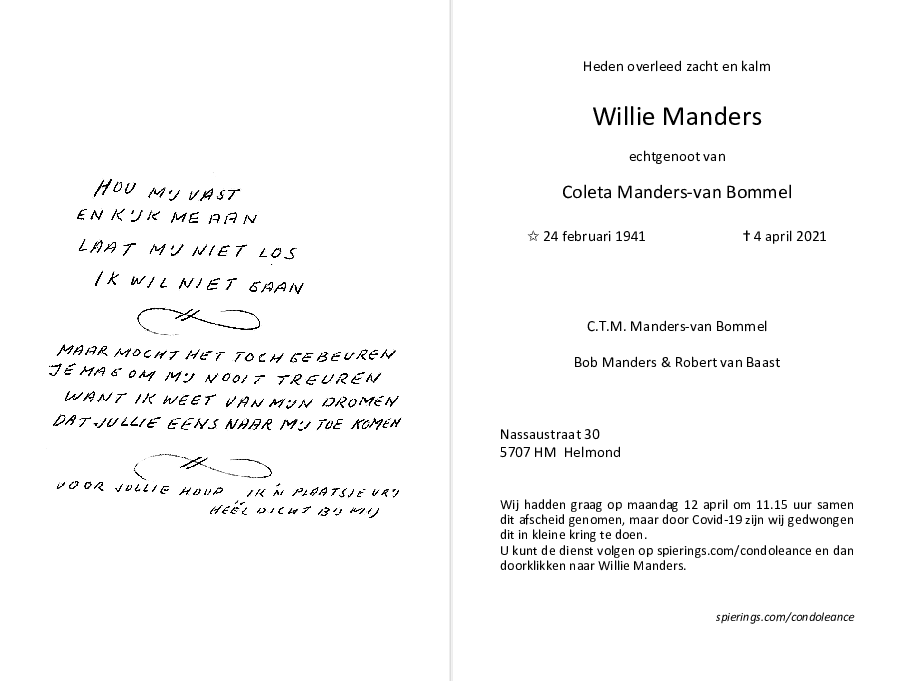 HOU MIJ VAST
EN KIJK ME AAN
LAAT MIJ NIET LOS
IK WIL NIET GAAN
MAAR MOCHT HET TOCH GEBEUREN
JE MAG OM MIJ NOOIT TREUREN
WANT IK WEET VAN MIJN DROMEN
DAT JULLIE EENS NAAR MIJ TOE KOMEN
VOOR JULLIE HOUD IK 'N PLAATSJE VRIJ
HÉÉL DICHT BIJ MIJ
Heden overleed zacht en kalm
Willie Manders
echtgenoot van
Coleta Manders-van Bommel
☆ 24 februari 1941 † 4 april 2021
C.T.M. Manders-van Bommel
Bob Manders & Robert van Baast
Nassaustraat 30
5707 HM Helmond
Wij hadden graag op maandag 12 april om 11.15 uur samen
dit afscheid genomen, maar door Covid-19 zijn wij gedwongen
dit in kleine kring te doen.
U kunt de dienst volgen op spierings.com/condoleance en dan
doorklikken naar Willie Manders.
spierings.com/condoleance